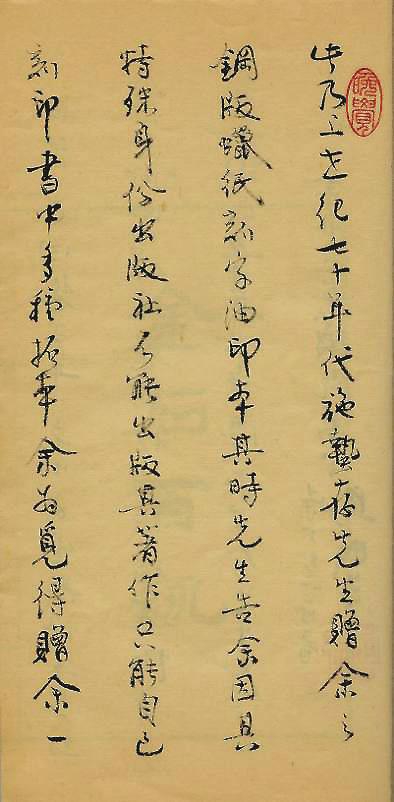 此乃上世纪七十年代施蛰存先生赠余之
鋼版蠟纸刻字油印本其時先生告余因其
特殊身份出版社不能出版其著作只能自己
刻印書中多種拓本余為覓得贈余一